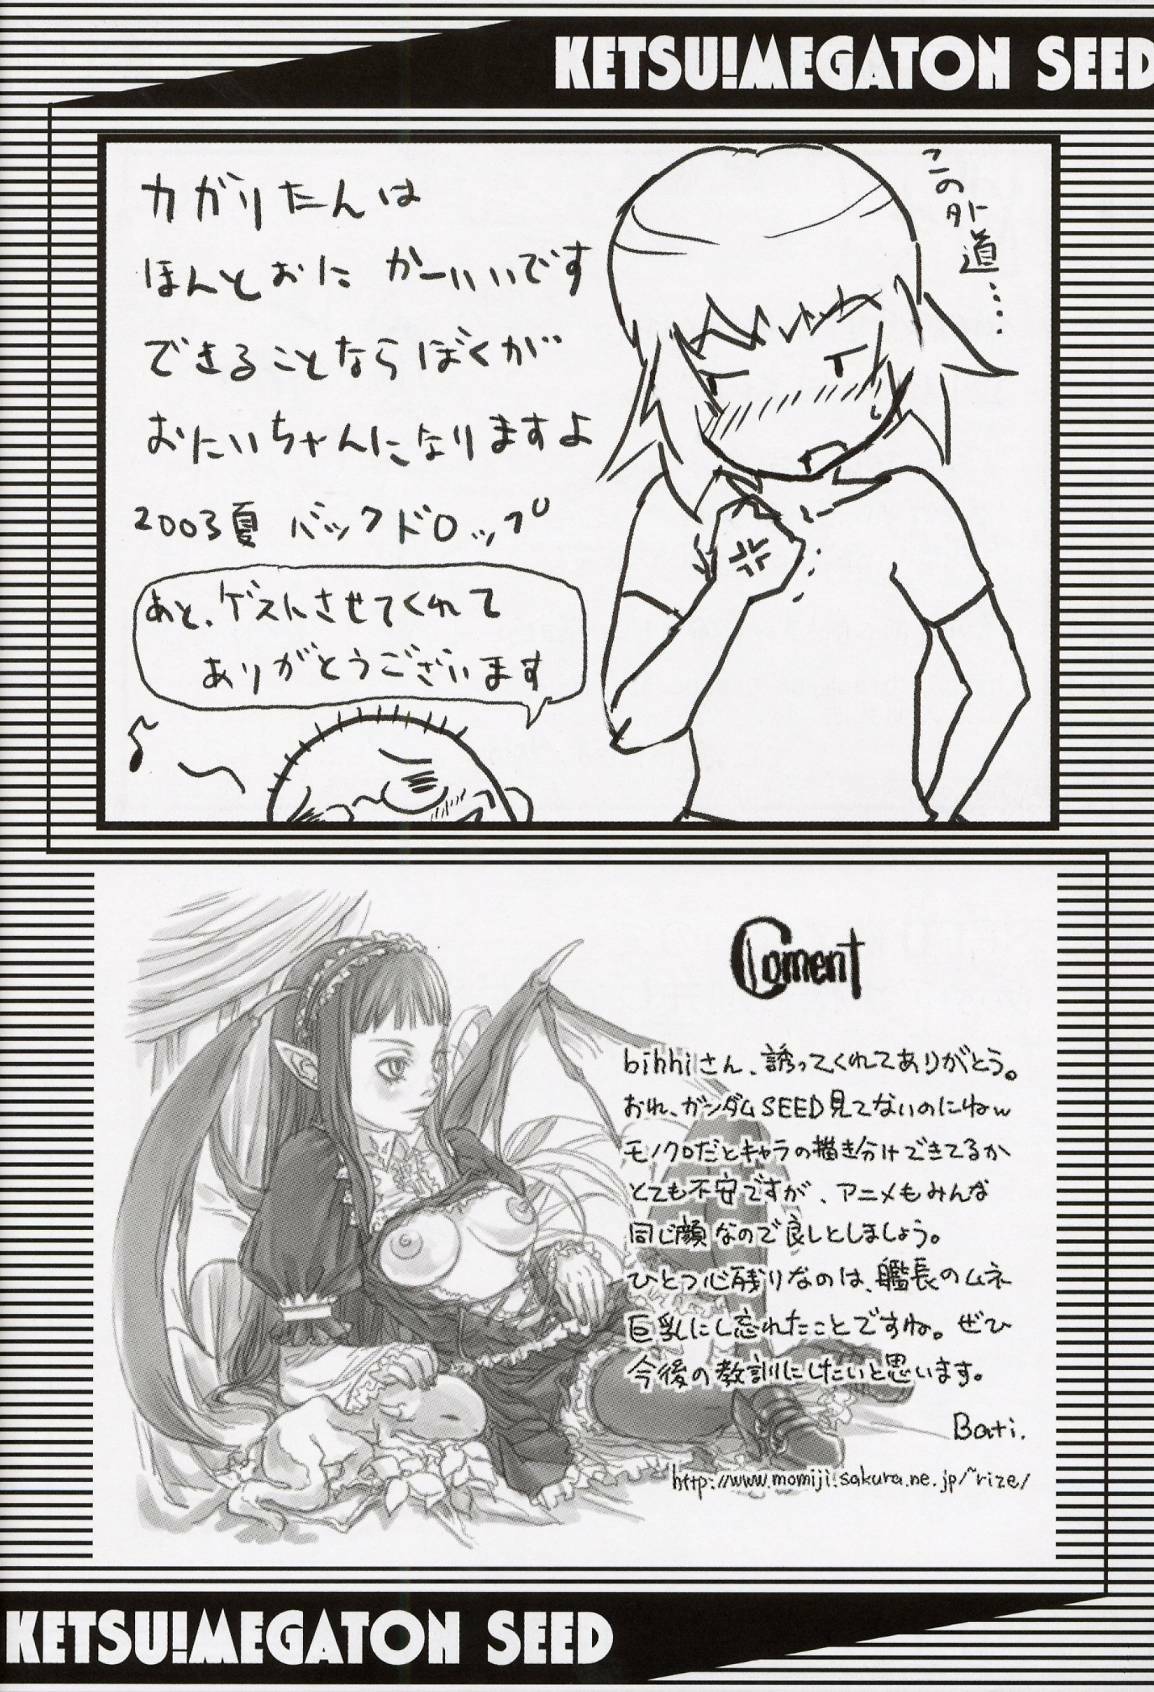 KETSU!MEGATON SEED
カガリたんは
ほんとおに かーいいです
できることならぼくが
おにいちゃんになりますよ
2003夏 バックドロップ
この外道‥‥
あと、ゲストにさせてくれて
ありがとうございます
Coment
bihhiさん、誘ってくれてありがとう。
おれ、ガンダムSEED見てないのにねw
モノクロだとキャラの描き分けできてるか
とても不安ですが、アニメもみんな
同じ顔なので良しとしましょう。
ひとつ心残りなのは、艦長のムネ
巨乳にし忘れたことですね。ぜひ
今後の教訓にしたいと思います。
Bati.
http://www.momiji.sakura.ne.jp/~rize/
KETSU!MEGATON SEED